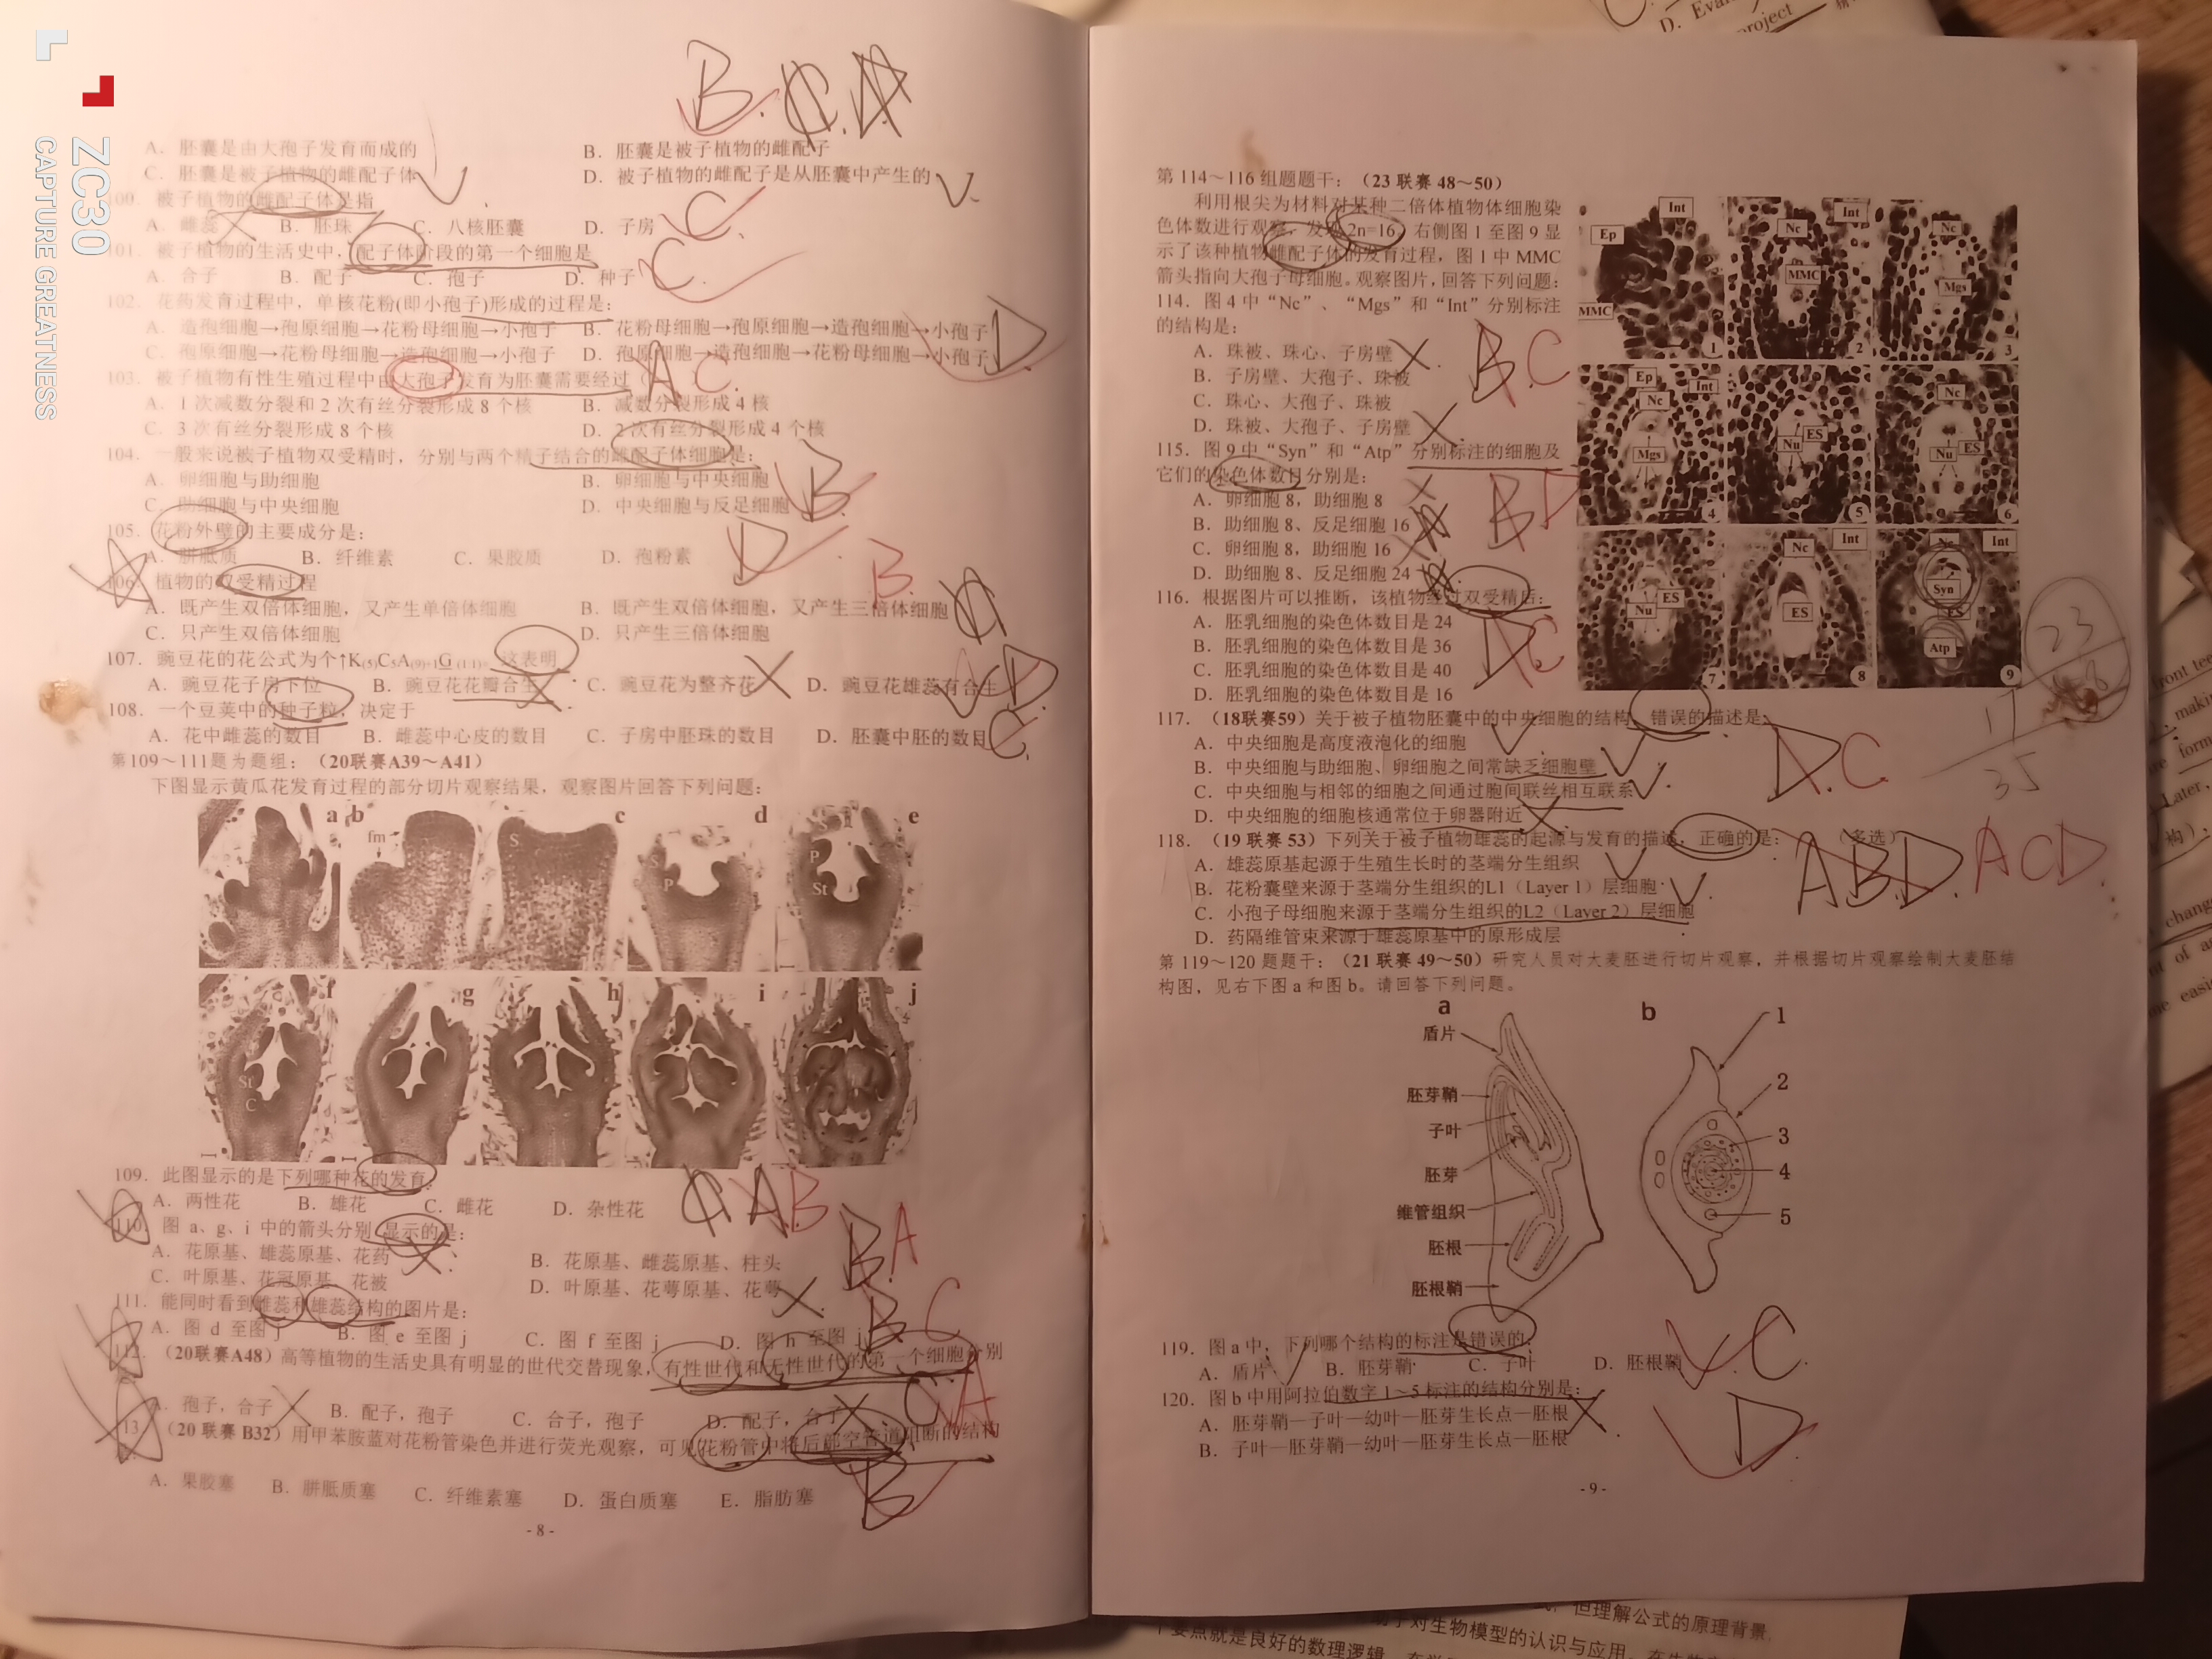 ZC30
CAPTURE GREATNESS
B. C. A
A. 胚囊是由大孢子发育而成的 B. 胚囊是被子植物的雌配子
C. 胚囊是被子植物的雌配子体 D. 被子植物的雌配子是从胚囊中产生的
100. 被子植物的雌配子体是指
A. 雌蕊 B. 胚珠 C. 八核胚囊 D. 子房 C.
101. 被子植物的生活史中,配子体阶段的第一个细胞是
A. 合子 B. 配子 C. 孢子 D. 种子 C.
102. 花药发育过程中,单核花粉(即小孢子)形成的过程是:
A. 造孢细胞→孢原细胞→花粉母细胞→小孢子 B. 花粉母细胞→孢原细胞→造孢细胞→小孢子
C. 孢原细胞→花粉母细胞→造孢细胞→小孢子 D. 孢原细胞→造孢细胞→花粉母细胞→小孢子 D.
103. 被子植物有性生殖过程中由大孢子发育为胚囊需要经过 A C.
A. 1 次减数分裂和 2 次有丝分裂形成 8 个核 B. 减数分裂形成 4 核
C. 3 次有丝分裂形成 8 个核 D. 2 次有丝分裂形成 4 个核
104. 一般来说被子植物双受精时,分别与两个精子结合的雌配子体细胞是:
A. 卵细胞与助细胞 B. 卵细胞与中央细胞
C. 助细胞与中央细胞 D. 中央细胞与反足细胞 B.
105. 花粉外壁的主要成分是:
A. 胼胝质 B. 纤维素 C. 果胶质 D. 孢粉素 D.
106. 植物的双受精过程 B.
A. 既产生双倍体细胞,又产生单倍体细胞 B. 既产生双倍体细胞,又产生三倍体细胞
C. 只产生双倍体细胞 D. 只产生三倍体细胞
107. 豌豆花的花公式为个↑K(5)C5A(9)+1G(1:1), 这表明
A. 豌豆花子房下位 B. 豌豆花花瓣合生 C. 豌豆花为整齐花 D. 豌豆花雄蕊有合生 D
108. 一个豆荚中的种子粒,决定于
A. 花中雌蕊的数目 B. 雌蕊中心皮的数目 C. 子房中胚珠的数目 D. 胚囊中胚的数目 C.
第109～111题为题组:(20联赛A39～A41)
下图显示黄瓜花发育过程的部分切片观察结果,观察图片回答下列问题:
a b c d e
fm S S P S P St
f g h i j
St C
109. 此图显示的是下列哪种花的发育
A. 两性花 B. 雄花 C. 雌花 D. 杂性花 C A B
110. 图 a、g、i 中的箭头分别显示的是:
A. 花原基、雄蕊原基、花药 B. 花原基、雌蕊原基、柱头 B. A
C. 叶原基、花冠原基、花被 D. 叶原基、花萼原基、花萼
111. 能同时看到雌蕊和雄蕊结构的图片是:
A. 图 d 至图 j B. 图 e 至图 j C. 图 f 至图 j D. 图 h 至图 j B C
112. (20联赛A48)高等植物的生活史具有明显的世代交替现象,有性世代和无性世代的第一个细胞分别
A. 孢子,合子 B. 配子,孢子 C. 合子,孢子 D. 配子,合子 C A
113. (20 联赛 B32)用甲苯胺蓝对花粉管染色并进行荧光观察,可见花粉管中将后部空管道阻断的结构
A. 果胶塞 B. 胼胝质塞 C. 纤维素塞 D. 蛋白质塞 E. 脂肪塞 B
- 8 -
第 114～116 组题题干:(23 联赛 48～50)
利用根尖为材料对某种二倍体植物体细胞染
色体数进行观察,发现 2n=16。右侧图 1 至图 9 显
示了该种植物雌配子体的发育过程,图 1 中 MMC
箭头指向大孢子母细胞。观察图片,回答下列问题:
114. 图 4 中“Nc”、“Mgs”和“Int”分别标注
的结构是:
A. 珠被、珠心、子房壁
B. 子房壁、大孢子、珠被 B. C
C. 珠心、大孢子、珠被
D. 珠被、大孢子、子房壁
115. 图 9 中“Syn”和“Atp”分别标注的细胞及
它们的染色体数目分别是:
A. 卵细胞 8,助细胞 8
B. 助细胞 8、反足细胞 16 B D
C. 卵细胞 8,助细胞 16
D. 助细胞 8、反足细胞 24
116. 根据图片可以推断,该植物经过双受精后:
A. 胚乳细胞的染色体数目是 24
B. 胚乳细胞的染色体数目是 36 D C
C. 胚乳细胞的染色体数目是 40
D. 胚乳细胞的染色体数目是 16
Ep Int MMC 1
Int Nc MMC 2
Int Nc Mgs 3
Ep Int Nc Mgs 4
Nc ES Nu 5
Nc ES Nu 6
ES Nu 7
Nc Int ES 8
Nc Int Syn ES Atp 9
23
17
35
117. (18联赛59)关于被子植物胚囊中的中央细胞的结构,错误的描述是:
A. 中央细胞是高度液泡化的细胞
B. 中央细胞与助细胞、卵细胞之间常缺乏细胞壁 D. C.
C. 中央细胞与相邻的细胞之间通过胞间联丝相互联系
D. 中央细胞的细胞核通常位于卵器附近
118. (19 联赛 53)下列关于被子植物雄蕊的起源与发育的描述,正确的是:(多选)
A. 雄蕊原基起源于生殖生长时的茎端分生组织 ABD. ACD.
B. 花粉囊壁来源于茎端分生组织的L1(Layer 1)层细胞
C. 小孢子母细胞来源于茎端分生组织的L2(Layer 2)层细胞
D. 药隔维管束来源于雄蕊原基中的原形成层
第 119～120 题题干:(21 联赛 49～50)研究人员对大麦胚进行切片观察,并根据切片观察绘制大麦胚结
构图,见右下图 a 和图 b。请回答下列问题。
a b
盾片
胚芽鞘
子叶
胚芽
维管组织
胚根
胚根鞘
1
2
3
4
5
119. 图 a 中,下列哪个结构的标注是错误的:
A. 盾片 B. 胚芽鞘 C. 子叶 D. 胚根鞘 C.
120. 图 b 中用阿拉伯数字 1～5 标注的结构分别是:
A. 胚芽鞘—子叶—幼叶—胚芽生长点—胚根
B. 子叶—胚芽鞘—幼叶—胚芽生长点—胚根 D
- 9 -
D. Eva
project
front tee
making
form
Later,
构)
change
t of a
easi
但理解公式的原理背景,
对生物模型的认识与应用。
要点就是良好的数理逻辑